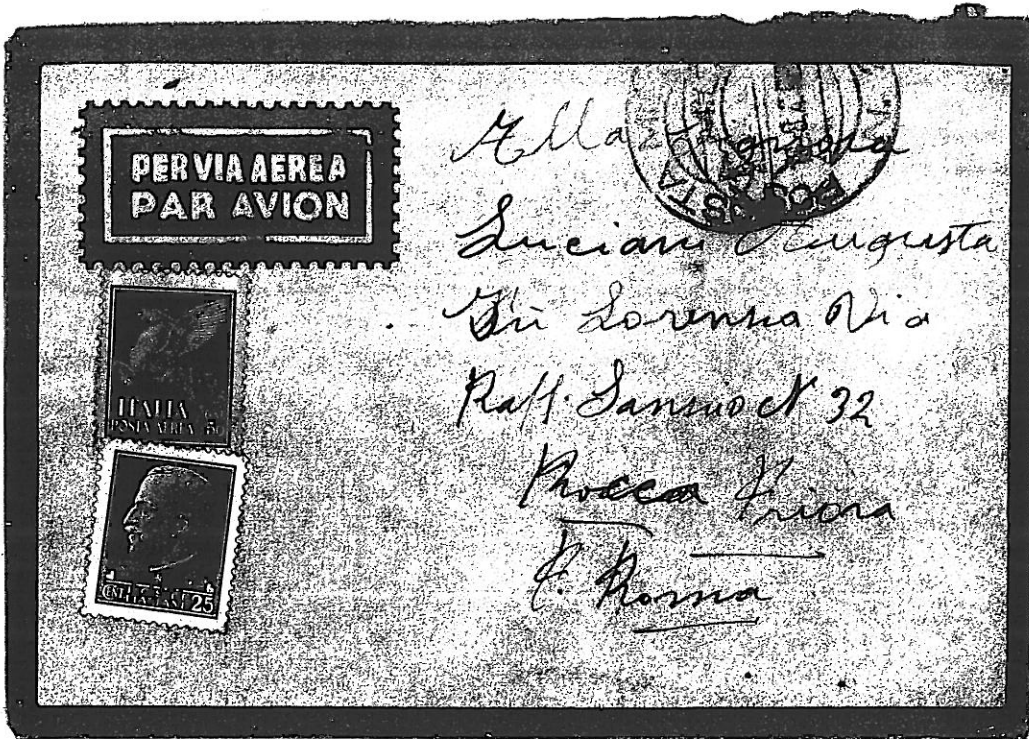 PER VIA AEREA
PAR AVION
ITALIA
POSTA AEREA 50
25
POSTA
Alla Signora
Luciani Augusta
Fù Lorenso Via
Raff. Sansio N 32
Rocca Priora
P. Roma